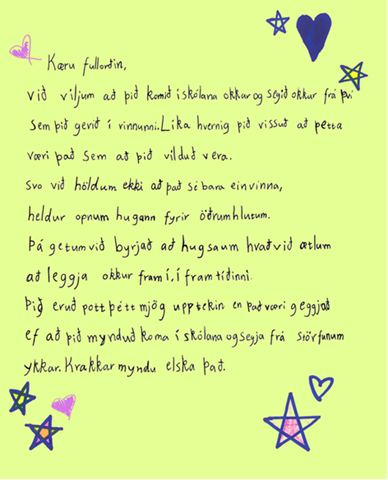 Kæru fullorðin,
við viljum að þið komið í skólana okkar og segið okkur frá því
sem þið gerið í vinnunni. Líka hvernig þið vissuð að þetta
væri það sem að þið vilduð vera.
Svo við höldum ekki að það sé bara ein vinna,
heldur opnum hugann fyrir öðrum hlutum.
Þá getum við byrjað að hugsa um hvað við ætlum
að leggja okkur fram í, í framtíðinni.
Þið eruð pottþétt mjög upptekin en það væri geggjað
ef að þið mynduð koma í skólana og segja frá störfunum
ykkar. Krakkar myndu elska það.